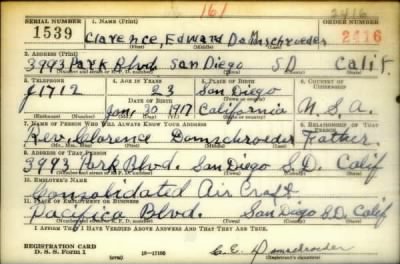 161
2416
SERIAL NUMBER 1. NAME (Print) ORDER NUMBER
1539 Clarence Edward Damschroeder 2416
(First) (Middle) (Last)
2. ADDRESS (Print)
3993 Park Blvd. San Diego S D Calif.
3. TELEPHONE 4. AGE IN YEARS 5. PLACE OF BIRTH 6. COUNTRY OF CITIZENSHIP
J1712 23 San Diego
DATE OF BIRTH
Jan. 30 1917 California U.S.A.
7. NAME OF PERSON WHO WILL ALWAYS KNOW YOUR ADDRESS 8. RELATIONSHIP OF THAT PERSON
Rev. Clarence Damschroeder Father
9. ADDRESS OF THAT PERSON
3993 Park Blvd. San Diego S.D. Calif
10. EMPLOYER'S NAME
Consolidated Air Craft
11. PLACE OF EMPLOYMENT OR BUSINESS
Pacifica Blvd. San Diego S.D. Calif
I AFFIRM THAT I HAVE VERIFIED ABOVE ANSWERS AND THAT THEY ARE TRUE.
REGISTRATION CARD
D. S. S. Form 1 C. E. Damschroeder
(Registrant's signature)